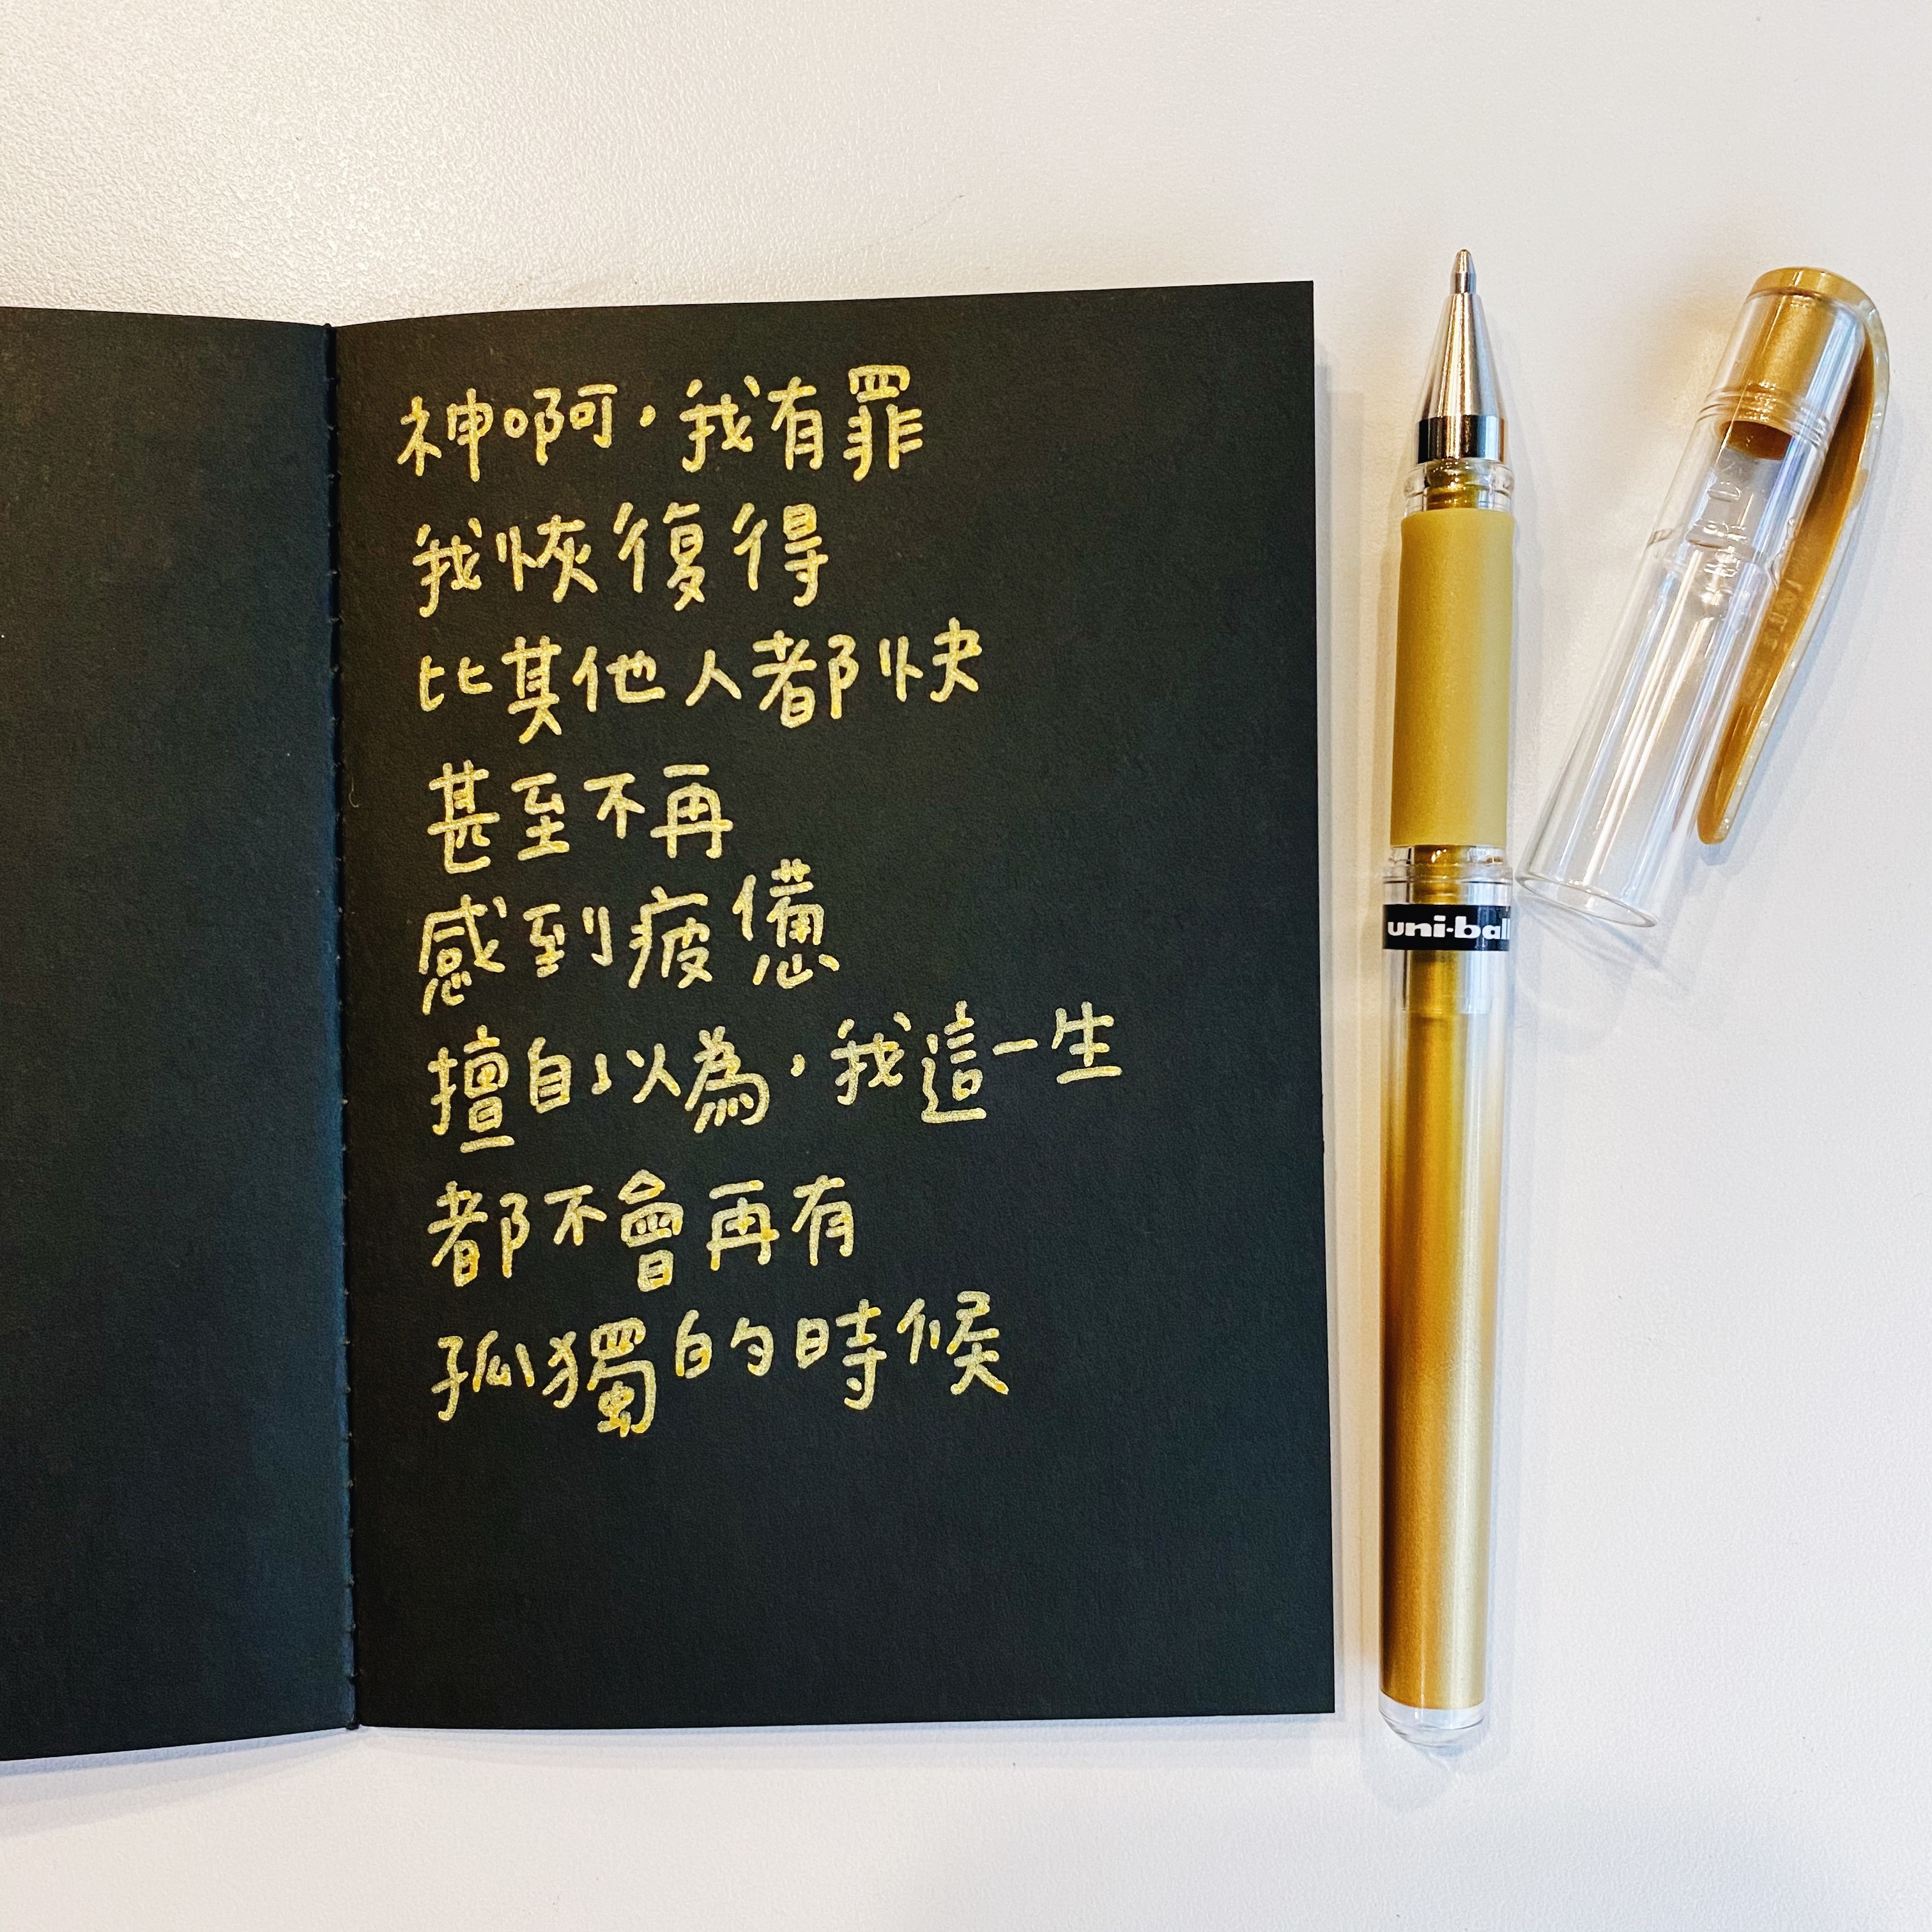 神啊，我有罪
我恢復得
比其他人都快
甚至不再
感到疲憊
擅自以為，我這一生
都不會再有
孤獨的時候
uni-ball